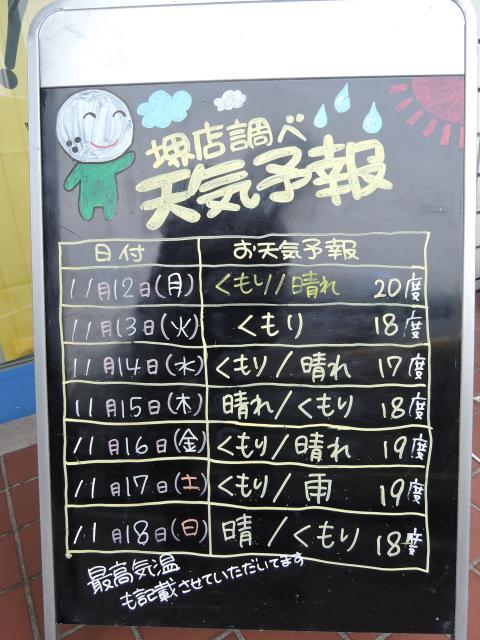 堺店調べ
天気予報
日付 お天気予報
11月12日(月) くもり/晴れ 20度
11月13日(火) くもり 18度
11月14日(水) くもり/晴れ 17度
11月15日(木) 晴れ/くもり 18度
11月16日(金) くもり/晴れ 19度
11月17日(土) くもり/雨 19度
11月18日(日) 晴/くもり 18度
最高気温
も記載させていただいてます